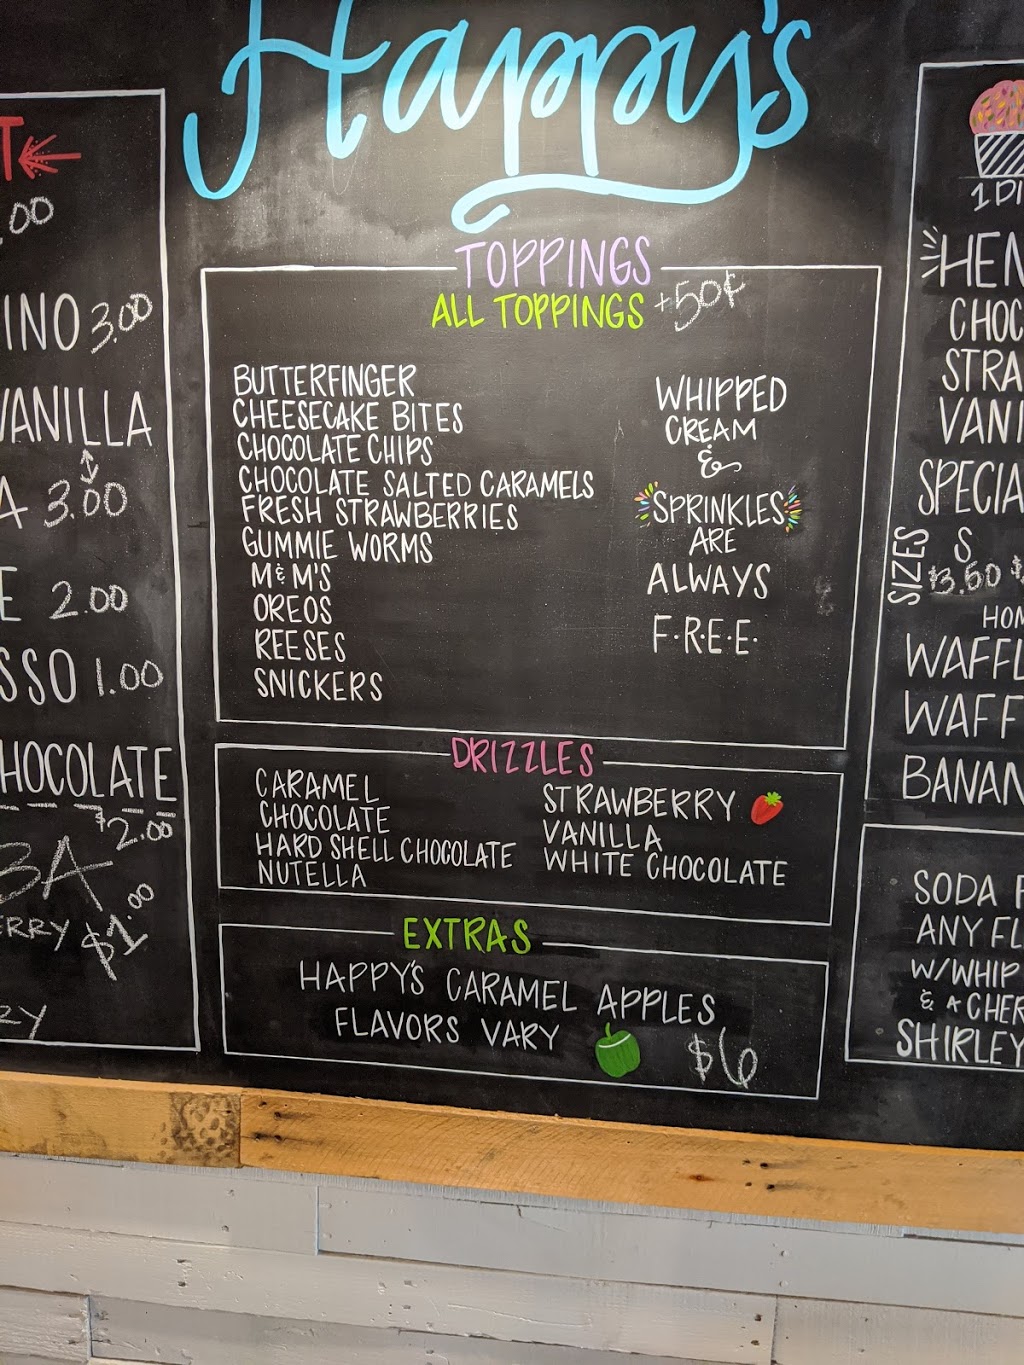 Happy's
TOPPINGS
ALL TOPPINGS +50¢
BUTTERFINGER
CHEESECAKE BITES
CHOCOLATE CHIPS
CHOCOLATE SALTED CARAMELS
FRESH STRAWBERRIES
GUMMIE WORMS
M&M'S
OREOS
REESES
SNICKERS
WHIPPED
CREAM
&
SPRINKLES
ARE
ALWAYS
F·R·E·E·
DRIZZLES
CARAMEL
CHOCOLATE
HARD SHELL CHOCOLATE
NUTELLA
STRAWBERRY
VANILLA
WHITE CHOCOLATE
EXTRAS
HAPPY'S CARAMEL APPLES
FLAVORS VARY $6
T
.00
INO 3.00
VANILLA
A 3.00
E 2.00
SSO 1.00
HOCOLATE
$2.00
BA
ERRY $1.00
ZY
1 DI
HEN
CHOC
STRA
VANI
SPECIA
SIZES
S
$3.50 $
HOM
WAFFL
WAFF
BANAN
SODA F
ANY FL
W/WHIP
& A CHER
SHIRLEY